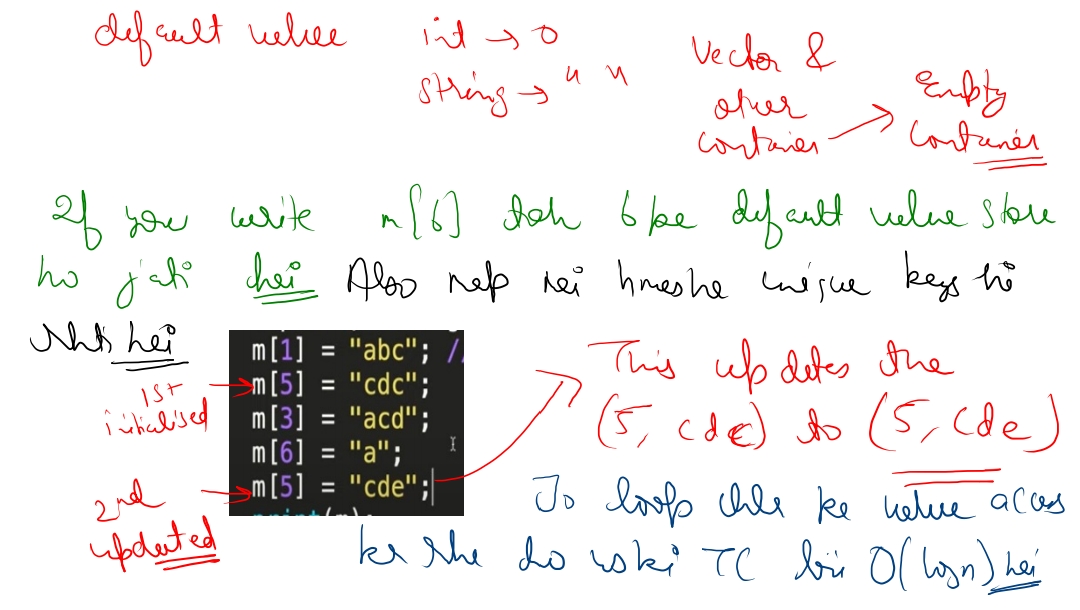 default value int → 0
string → " "
Vector &
other
container → Empty
Container
If you write m[6] toh 6 pe default value store
ho jati hei Also map mei hmesha unique keys hi
rhti hei
m[1] = "abc"; //
m[5] = "cdc";
m[3] = "acd";
m[6] = "a";
m[5] = "cde";
1st
initialised
2nd
updated
This updates the
(5, cdc) to (5, cde)
Jo loop chla ke value access
kr rhe ho uski TC bhi O(logn) hei